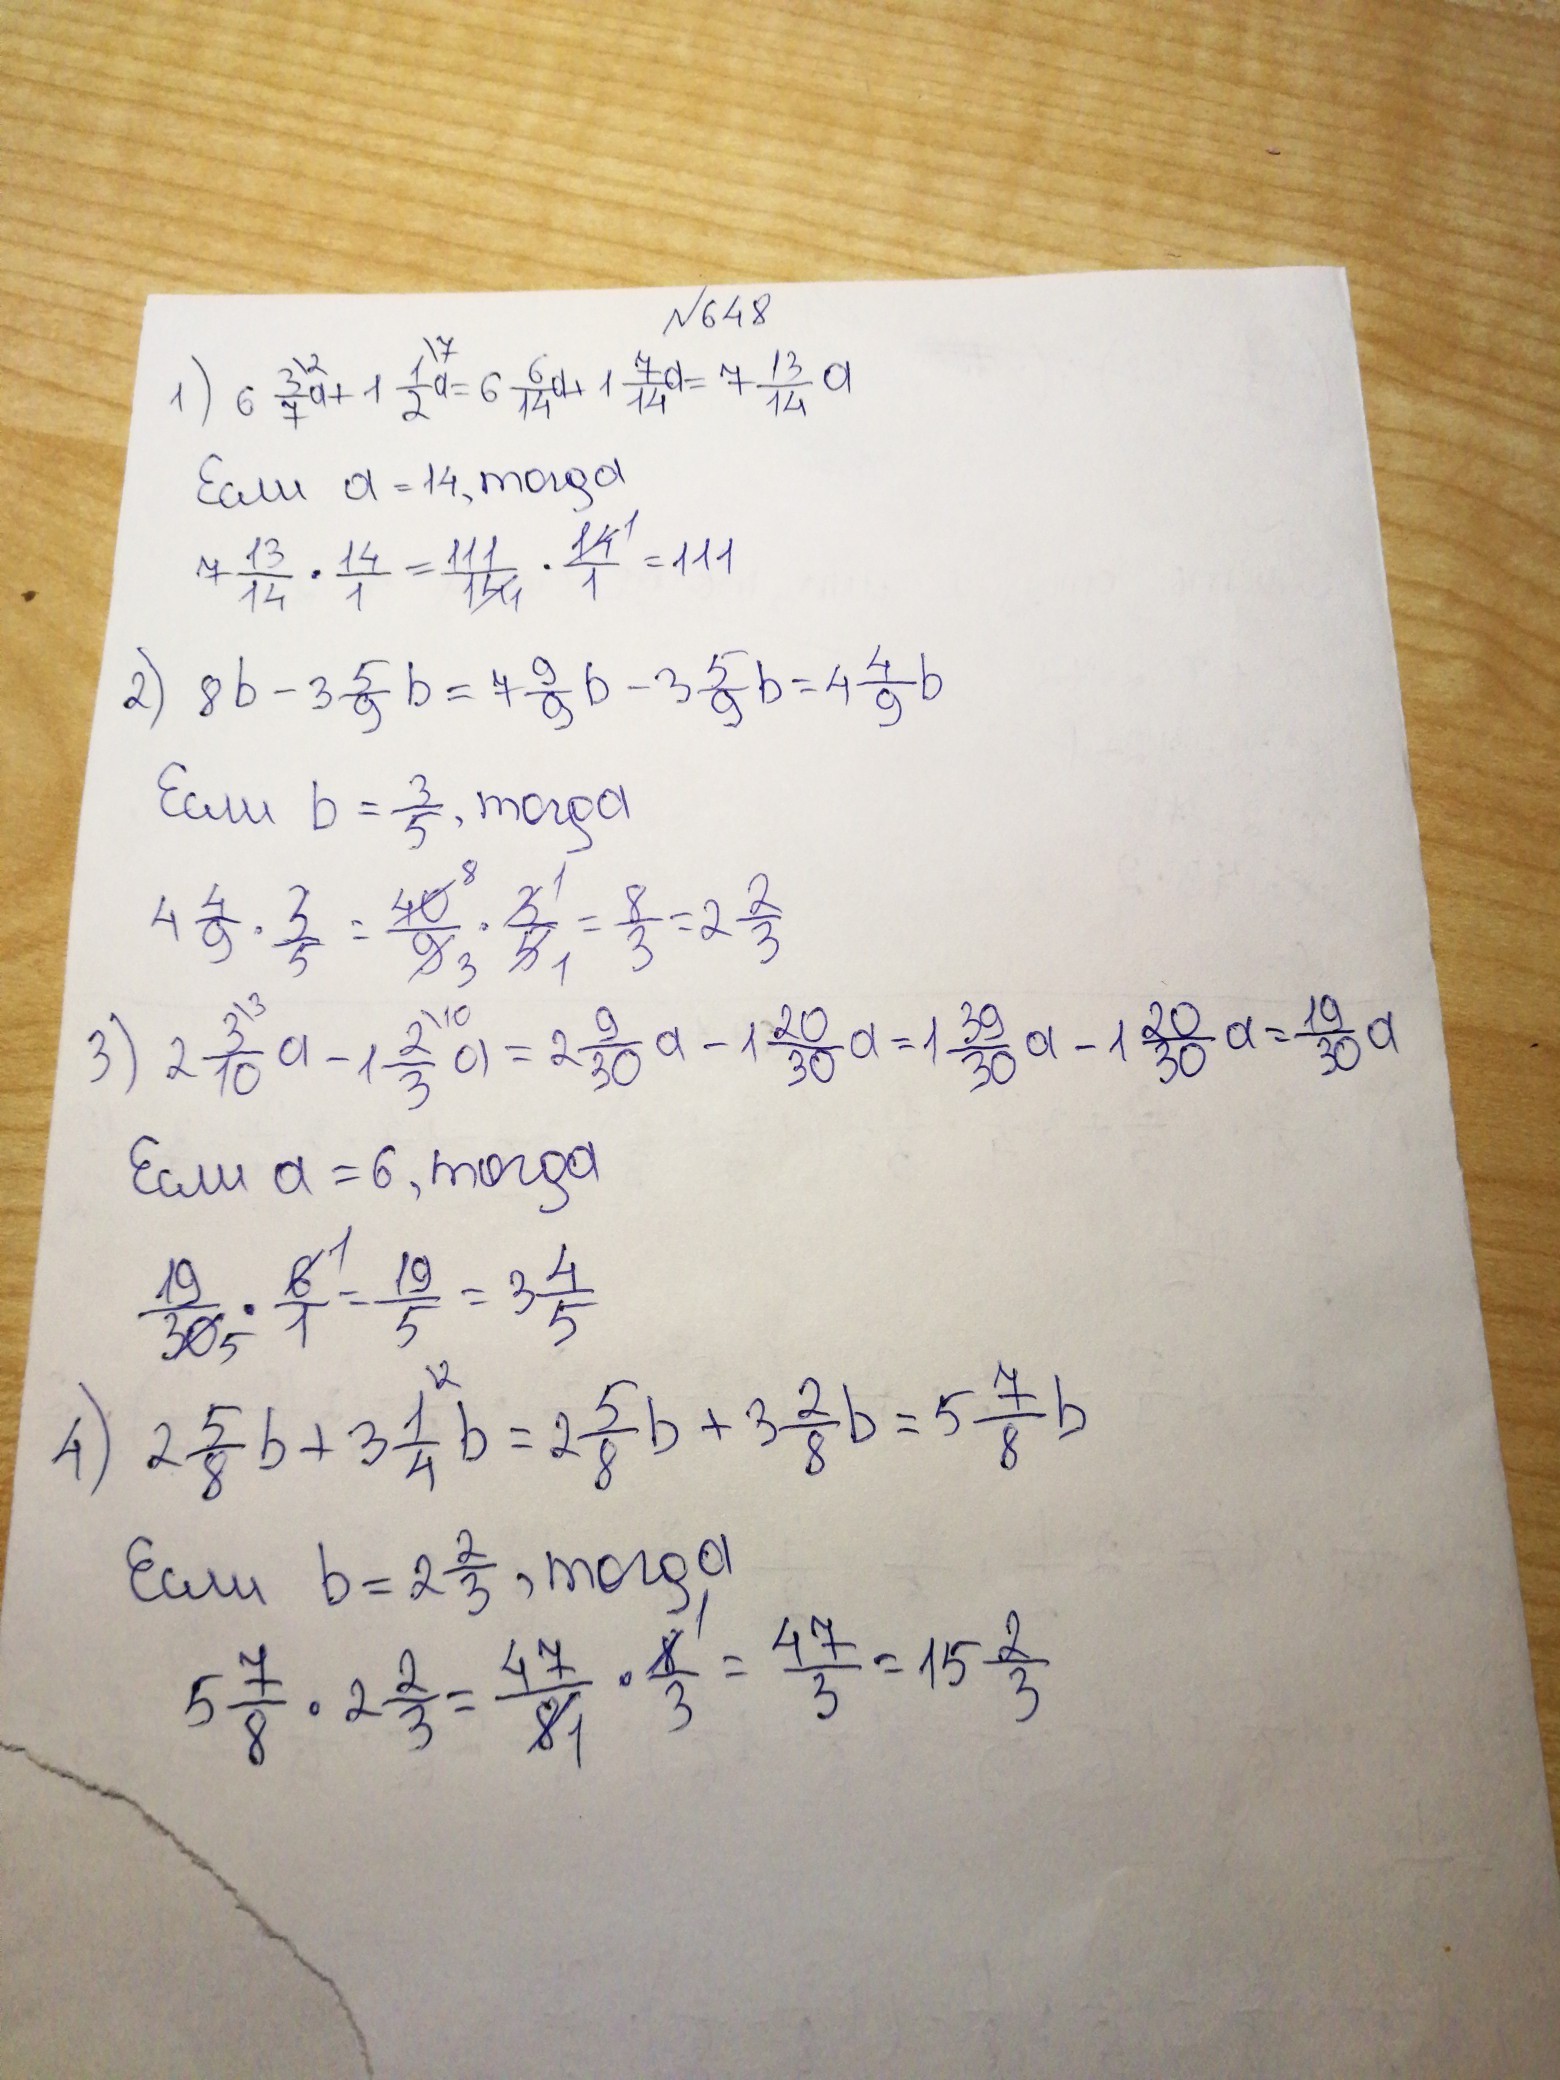 №648
1) 6 3/7\2 a + 1 1/2\7 a = 6 6/14 a + 1 7/14 a = 7 13/14 a
Если a = 14, тогда
7 13/14 · 14/1 = 111/14 1 · 14 1/1 = 111
2) 8b - 3 5/9 b = 7 9/9 b - 3 5/9 b = 4 4/9 b
Если b = 3/5, тогда
4 4/9 · 3/5 = 40 8/9 3 · 3 1/5 1 = 8/3 = 2 2/3
3) 2 3/10\3 a - 1 2/3\10 a = 2 9/30 a - 1 20/30 a = 1 39/30 a - 1 20/30 a = 19/30 a
Если a = 6, тогда
19/30 5 · 6 1/1 = 19/5 = 3 4/5
4) 2 5/8 b + 3 1/4\2 b = 2 5/8 b + 3 2/8 b = 5 7/8 b
Если b = 2 2/3, тогда
5 7/8 · 2 2/3 = 47/8 1 · 8 1/3 = 47/3 = 15 2/3